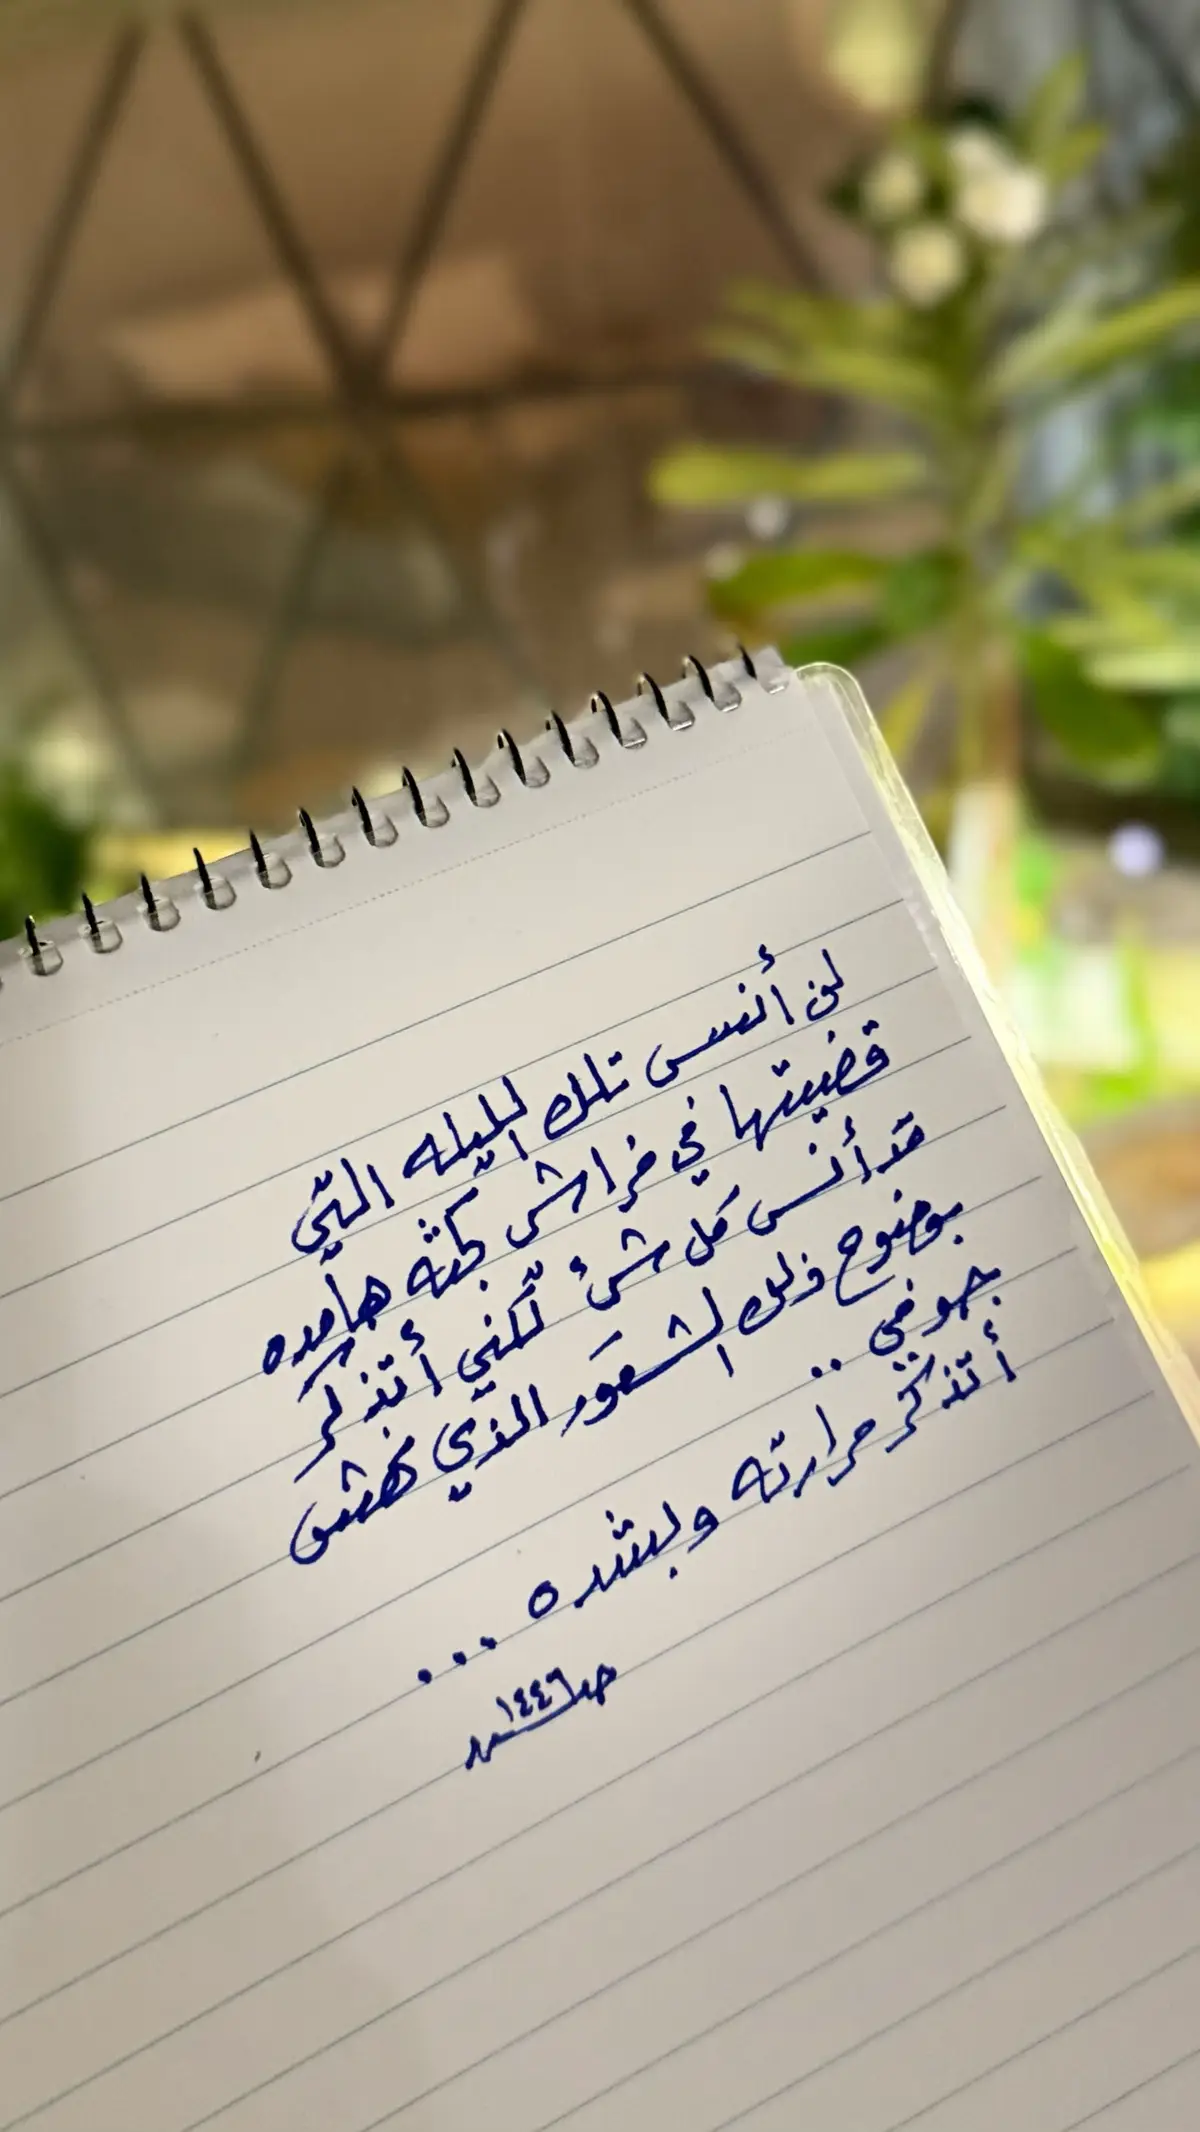 لن أنسى تلك الليله التي
قضيتها في فراش كجثه هامده
قد أنسى كل شئ لكنني أتذكر
بوضوح ذلك الشعور الذي نهش
جوفي ..
أتذكر مرارته وبشده ...
١٤٤٦